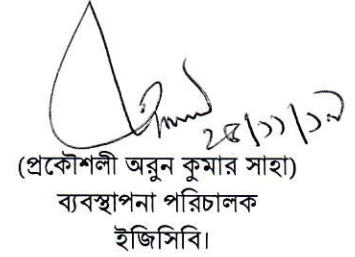 (প্রকৌশলী অরুন কুমার সাহা)
ব্যবস্থাপনা পরিচালক
ইজিসিবি।